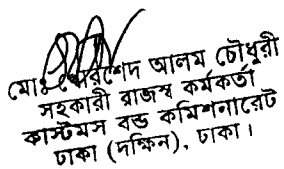 মোঃ মোরশেদ আলম চৌধুরী
সহকারী রাজস্ব কর্মকর্তা
কাস্টমস বন্ড কমিশনারেট
ঢাকা (দক্ষিন), ঢাকা।